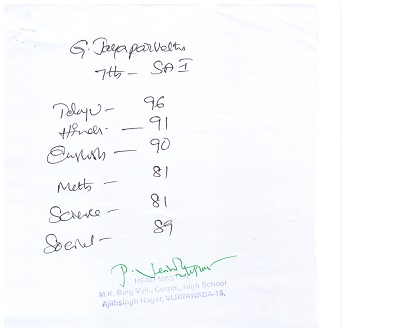 G. Jayaparvathi
7th - SA I
Telugu - 96
Hindi - 91
English - 90
Maths - 81
Science - 81
Social - 89
P.
HEAD MAS
M.K. Baig Mpl., Corpn., High School
Ajithsingh Nagar, VIJAYAWADA-15.